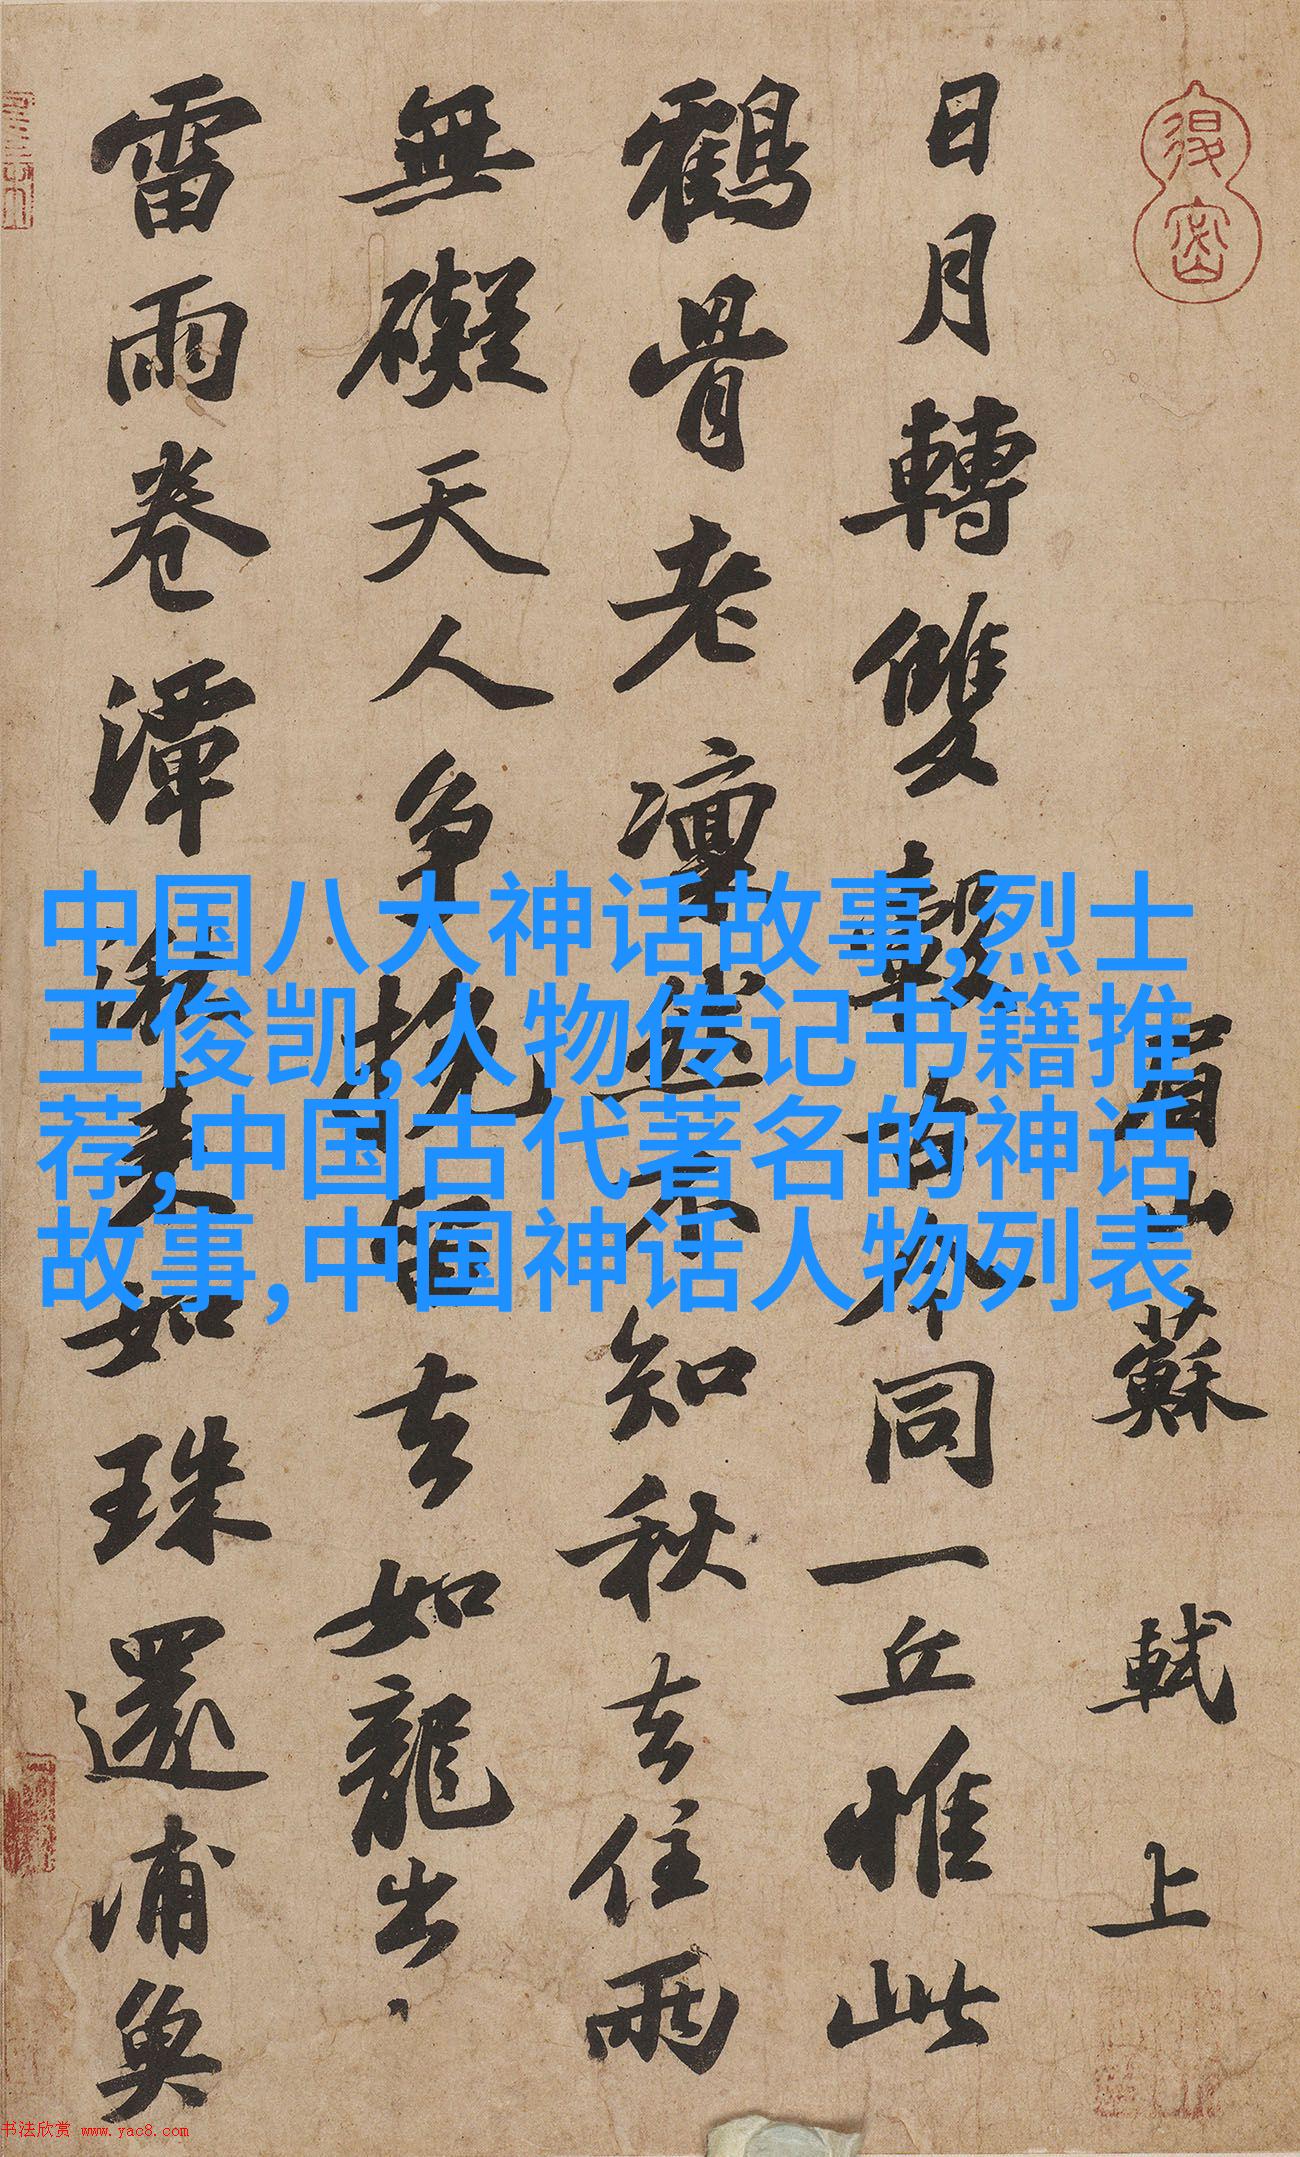 眉山蘇軾上
日月轉雙轂古今同一丘惟此
鶴骨老凜然不知秋去住兩
無礙天人爭挽留去如龍出
雷雨卷潭湫來如珠還浦魚
中国八大神话故事,烈士
王俊凯,人物传记书籍推
荐,中国古代著名的神话
故事,中国神话人物列表
书法欣赏 www.yac8.com